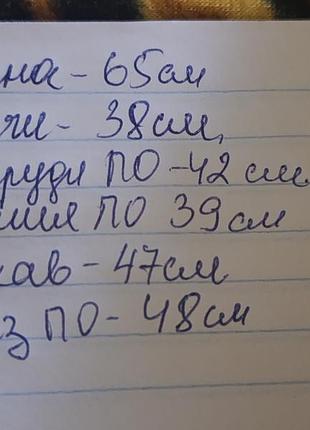 на - 65см
чи - 38см,
руди ПО - 42 см
лия ПО 39см
кав - 47см
з ПО - 48см